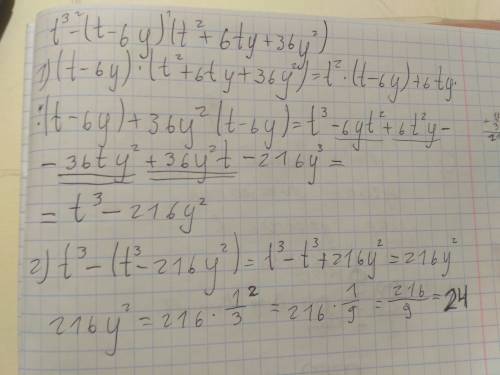 t³ ²- (t-6y) ¹(t²+6ty+36y²)
1) (t-6y)·(t²+6ty+36y²)=t²·(t-6y)+6ty·
·(t-6y)+36y²(t-6y)=t³-6yt²+6t²y-
-36ty²+36y²t-216y³=
=t³-216y²
2) t³-(t³-216y²)=t³-t³+216y²=216y²
216y²=216·1/3²=216·1/9=216/9=24